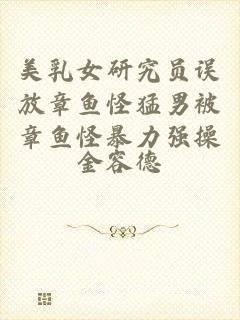 美乳女研究员误
放章鱼怪猛男被
章鱼怪暴力强操
金容德